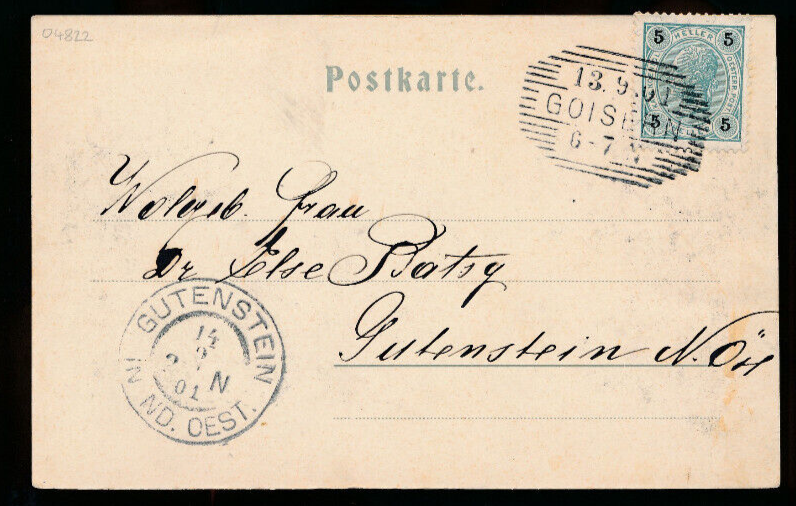 04822
Postkarte.
5 HELLER 5
5 5
13.9.01
GOISERN
6-7 N
Wolgeb. Frau
Dr Else Batsy
Gutenstein N. Öst
GUTENSTEIN
14
9
2 N
01
IN ND. OEST.